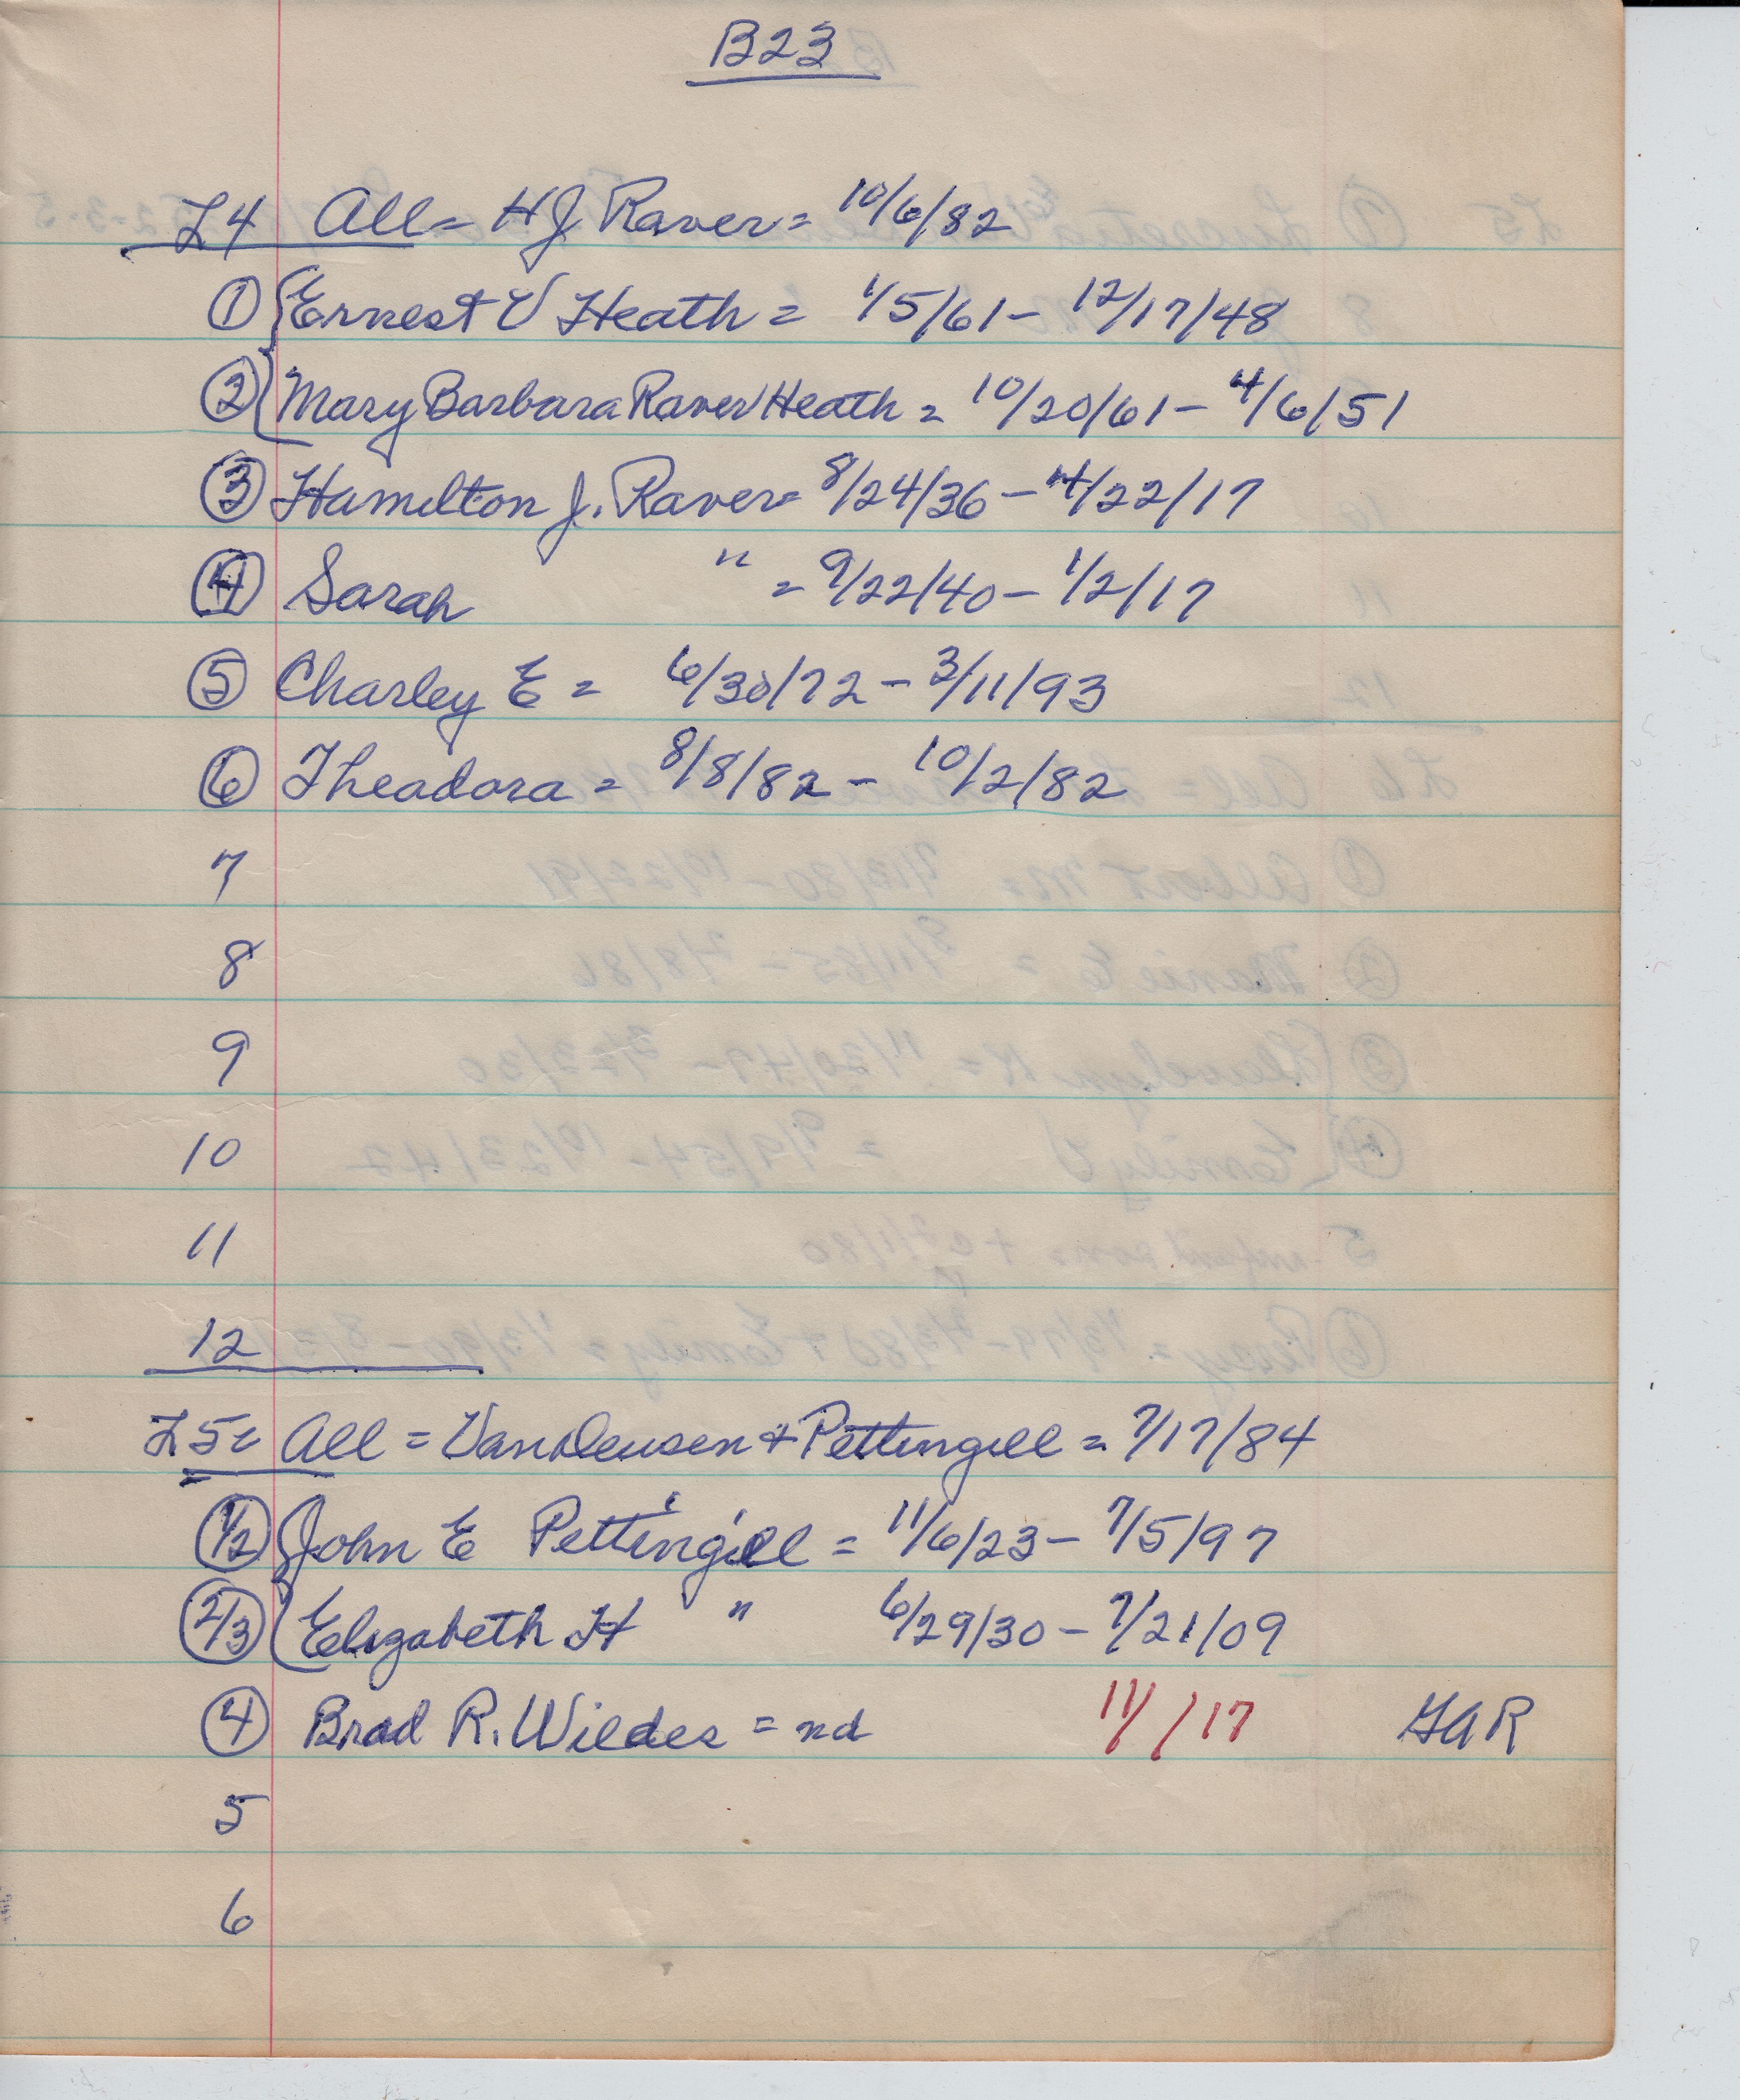 B23
L4 All = H J Raver = 10/6/82
1 Ernest V Heath = 1/5/61 - 12/17/48
2 Mary Barbara Raver Heath = 10/20/61 - 4/6/51
3 Hamilton J. Raver = 8/24/36 - 4/22/17
4 Sarah " = 9/22/40 - 1/2/17
5 Charley E = 6/30/72 - 3/11/93
6 Theadora = 8/8/82 - 10/2/82
7
8
9
10
11
12
L5 = All = VanDeusen + Pettingill = 7/17/84
1/2 John E Pettingill = 11/6/23 - 7/5/97
2/3 Elizabeth H " 6/29/30 - 7/21/09
4 Brad R. Wildes = nd 11/ /17 GAR
5
6